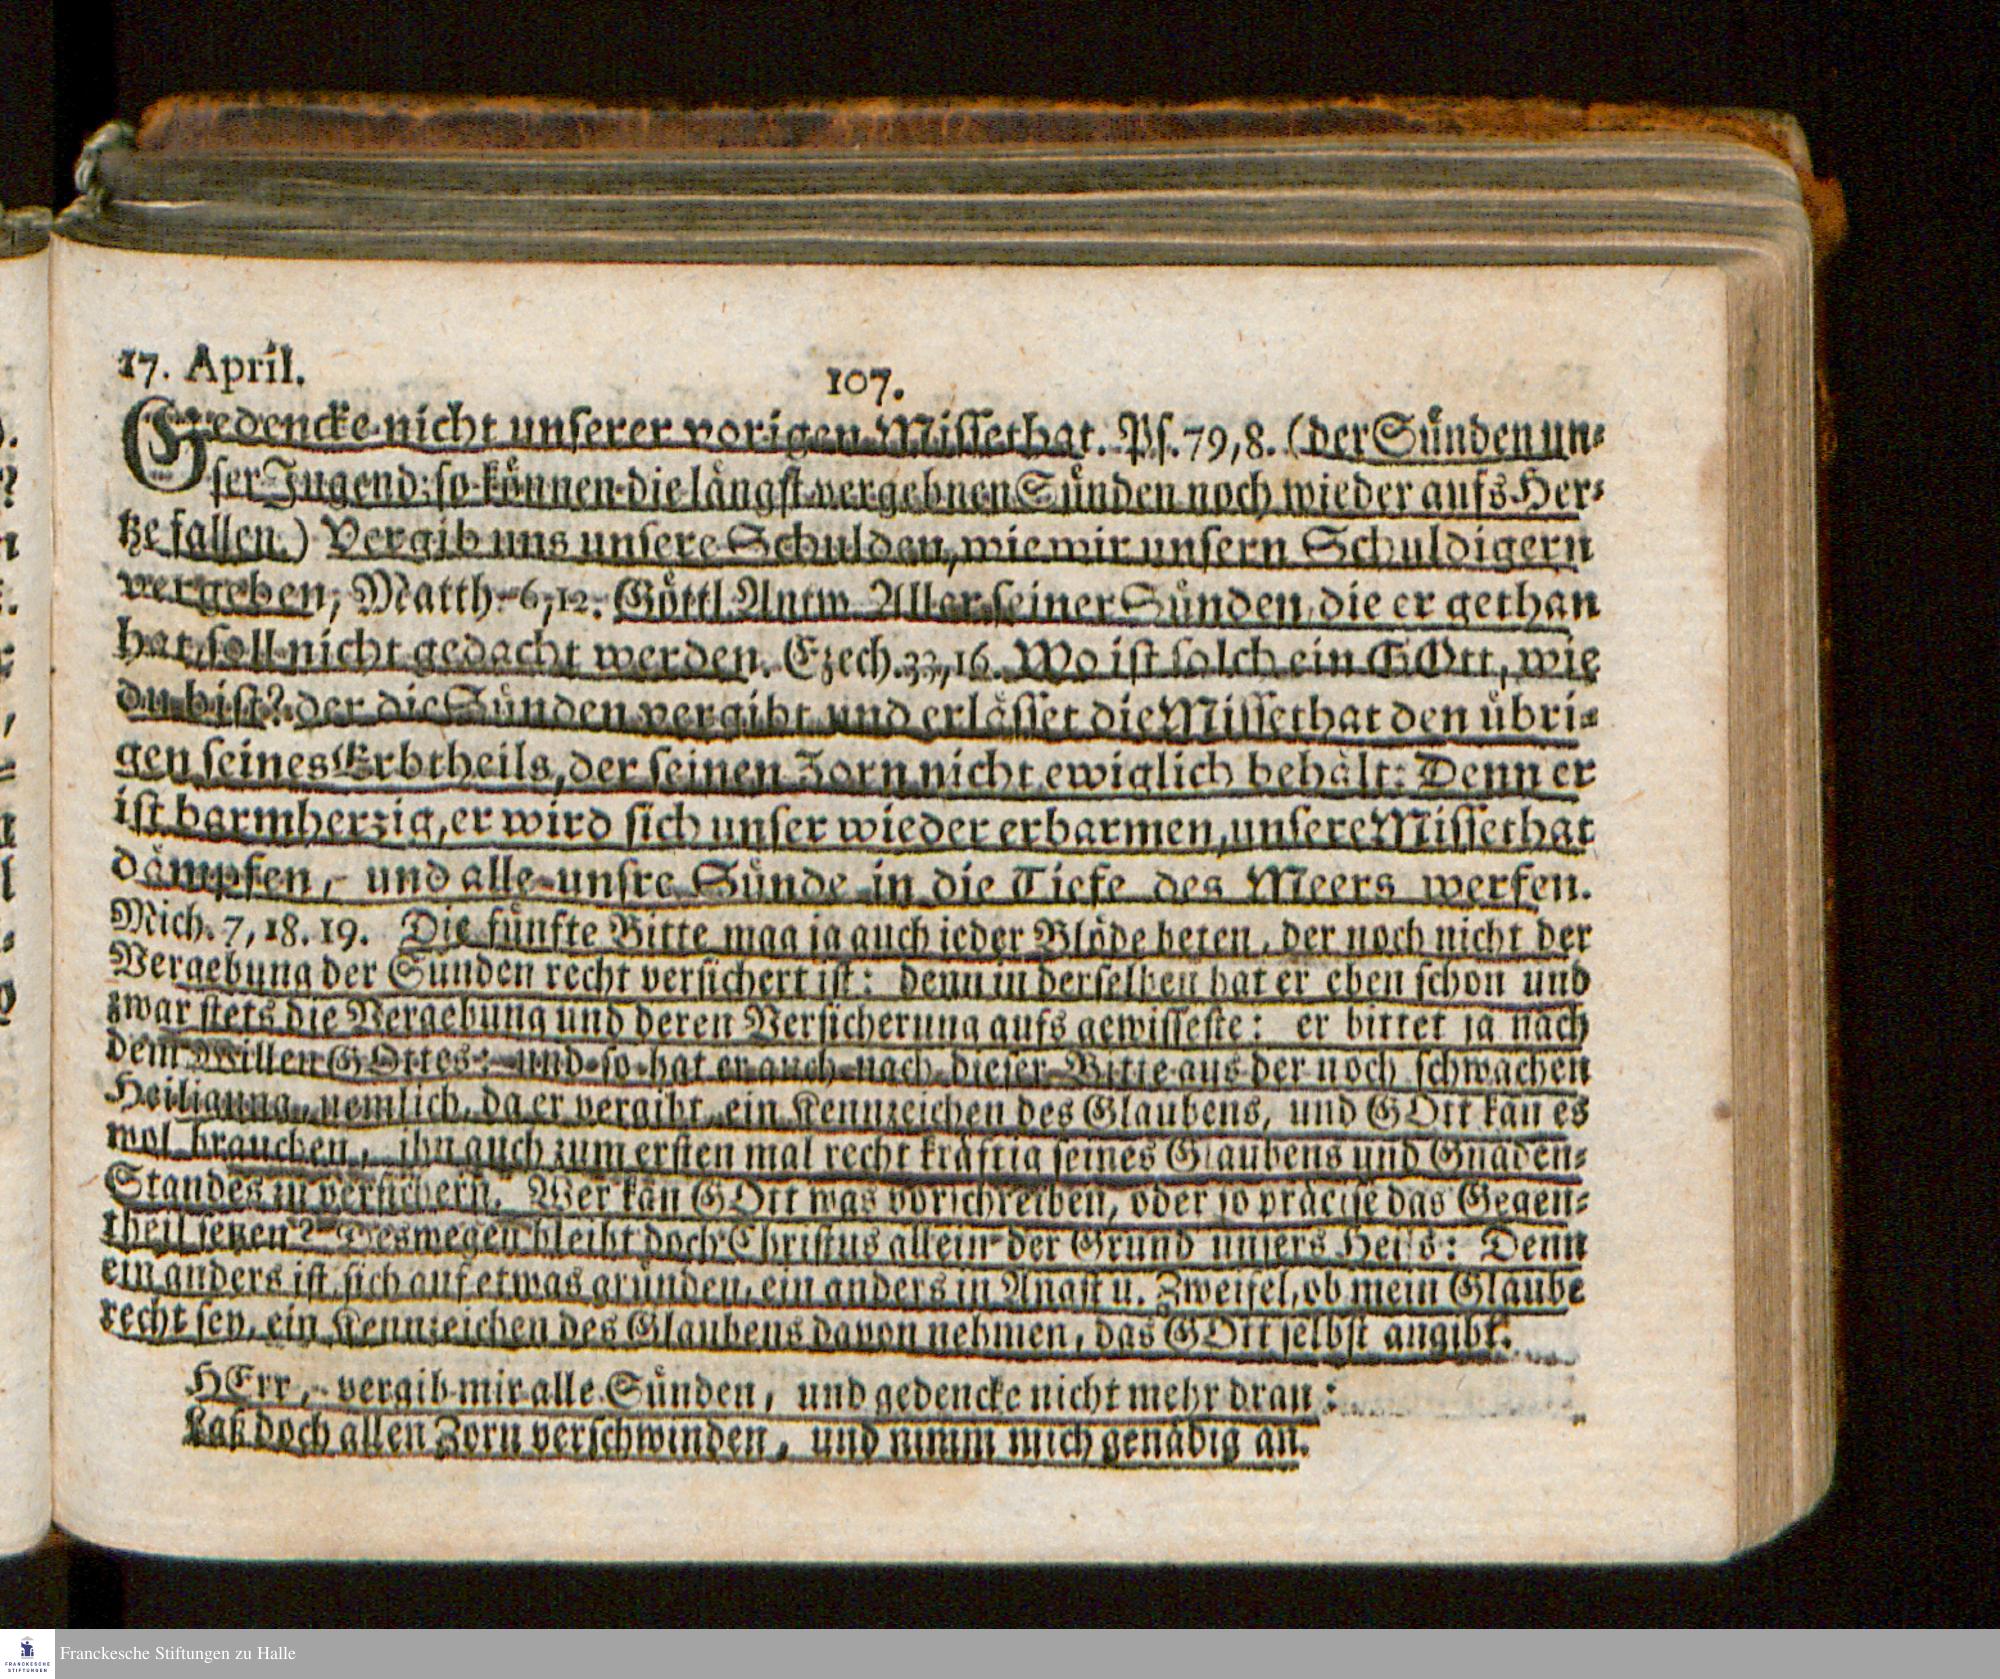 17. April.
107.
Gedencke nicht unserer vorigen Missethat. Ps. 79,8. (der Sünden un-
ser Jugend: so können die längst vergebnen Sünden noch wieder aufs Her-
tze fallen.) Vergib uns unsere Schulden, wie wir unsern Schuldigern
vergeben, Matth. 6,12. Göttl. Antw. Aller seiner Sünden, die er gethan
hat, soll nicht gedacht werden. Ezech. 33,16. Wo ist solch ein GOtt, wie
du bist? der die Sünden vergibt und erlässet die Missethat den übri-
gen seines Erbtheils, der seinen Zorn nicht ewiglich behält: Denn er
ist barmherzig, er wird sich unser wieder erbarmen, unsere Missethat
dämpfen, und alle unsre Sünde in die Tiefe des Meers werfen.
Mich. 7, 18. 19. Die fünfte Bitte mag ja auch ieder Blöde beten, der noch nicht der
Vergebung der Sünden recht versichert ist: denn in derselben hat er eben schon und
zwar stets die Vergebung und deren Versicherung aufs gewisseste: er bittet ja nach
dem Willen GOttes: und so hat er auch nach dieser Bitte aus der noch schwachen
Heiligung, nemlich, da er vergibt, ein Kennzeichen des Glaubens, und GOtt kan es
wol brauchen, ihn auch zum ersten mal recht kräftig seines Glaubens und Gnaden-
Standes zu versichern. Wer kan GOtt was vorschreiben, oder so präcise das Gegen-
theil setzen? Deswegen bleibt doch Christus allein der Grund unsers Heils: Denn
ein anders ist, sich auf etwas gründen, ein anders in Angst u. Zweifel, ob mein Glaube
recht sey, ein Kennzeichen des Glaubens davon nehmen, das GOtt selbst angibt.
HErr, vergib mir alle Sünden, und gedencke nicht mehr dran:
Laß doch allen Zorn verschwinden, und nimm mich genädig an.
FRANCKESCHE
STIFTUNGEN
Franckesche Stiftungen zu Halle